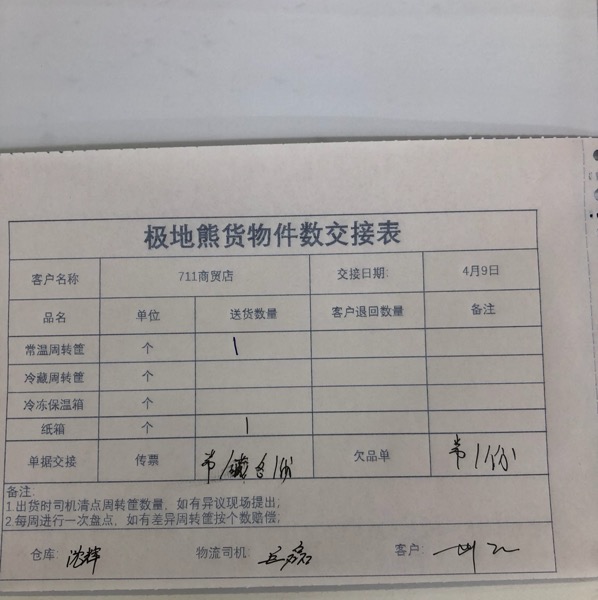 极地熊货物件数交接表
客户名称 711商贸店 交接日期: 4月9日
品名 单位 送货数量 客户退回数量 备注
常温周转筐 个 1
冷藏周转筐 个
冷冻保温箱 个
纸箱 个 1
单据交接 传票 欠品单
备注:
1.出货时司机清点周转筐数量，如有异议现场提出;
2.每周进行一次盘点，如有差异周转筐按个数赔偿;
仓库: 沈辉 物流司机: 客户: